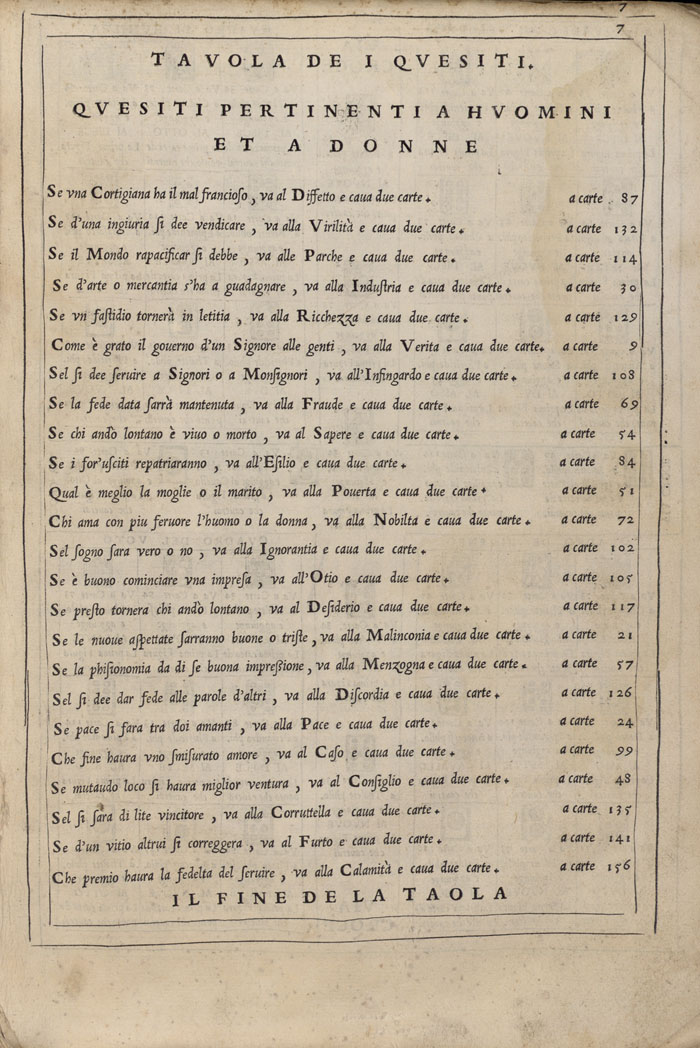 7
7
TAVOLA DE I QVESITI.
QVESITI PERTINENTI A HVOMINI
ET A DONNE
Se vna Cortigiana ha il mal francioſo, va al Diffetto e caua due carte. a carte 87
Se d'una ingiuria ſi dee vendicare, va alla Virilità e caua due carte. a carte 132
Se il Mondo rapacificar ſi debbe, va alle Parche e caua due carte. a carte 114
Se d'arte o mercantia s'ha a guadagnare, va alla Induſtria e caua due carte. a carte 30
Se vn faſtidio tornerà in letitia, va alla Ricchezza e caua due carte. a carte 129
Come è grato il governo d'un Signore alle genti, va alla Verita e caua due carte. a carte 9
Sel ſi dee ſeruire a Signori o a Monſignori, va all'Infingardo e caua due carte. a carte 108
Se la fede data ſarrà mantenuta, va alla Fraude e caua due carte. a carte 69
Se chi andò lontano è viuo o morto, va al Sapere e caua due carte. a carte 54
Se i for'uſciti repatriaranno, va all'Eſilio e caua due carte. a carte 84
Qual è meglio la moglie o il marito, va alla Pouerta e caua due carte. a carte 51
Chi ama con piu feruore l'huomo o la donna, va alla Nobilta e caua due carte. a carte 72
Sel ſogno ſara vero o no, va alla Ignorantia e caua due carte. a carte 102
Se è buono cominciare vna impreſa, va all'Otio e caua due carte. a carte 105
Se preſto tornera chi andò lontano, va al Deſiderio e caua due carte. a carte 117
Se le nuoue aſpettate ſarranno buone o triſte, va alla Malinconia e caua due carte. a carte 21
Se la phiſionomia da di ſe buona impreſſione, va alla Menzogna e caua due carte. a carte 57
Sel ſi dee dar fede alle parole d'altri, va alla Diſcordia e caua due carte. a carte 126
Se pace ſi fara tra doi amanti, va alla Pace e caua due carte. a carte 24
Che fine haura vno ſmiſurato amore, va al Caſo e caua due carte. a carte 99
Se mutaudo loco ſi haura miglior ventura, va al Conſiglio e caua due carte. a carte 48
Sel ſi ſara di lite vincitore, va alla Corruttella e caua due carte. a carte 135
Se d'un vitio altrui ſi correggera, va al Furto e caua due carte. a carte 141
Che premio haura la fedelta del ſeruire, va alla Calamità e caua due carte. a carte 156
IL FINE DE LA TAOLA